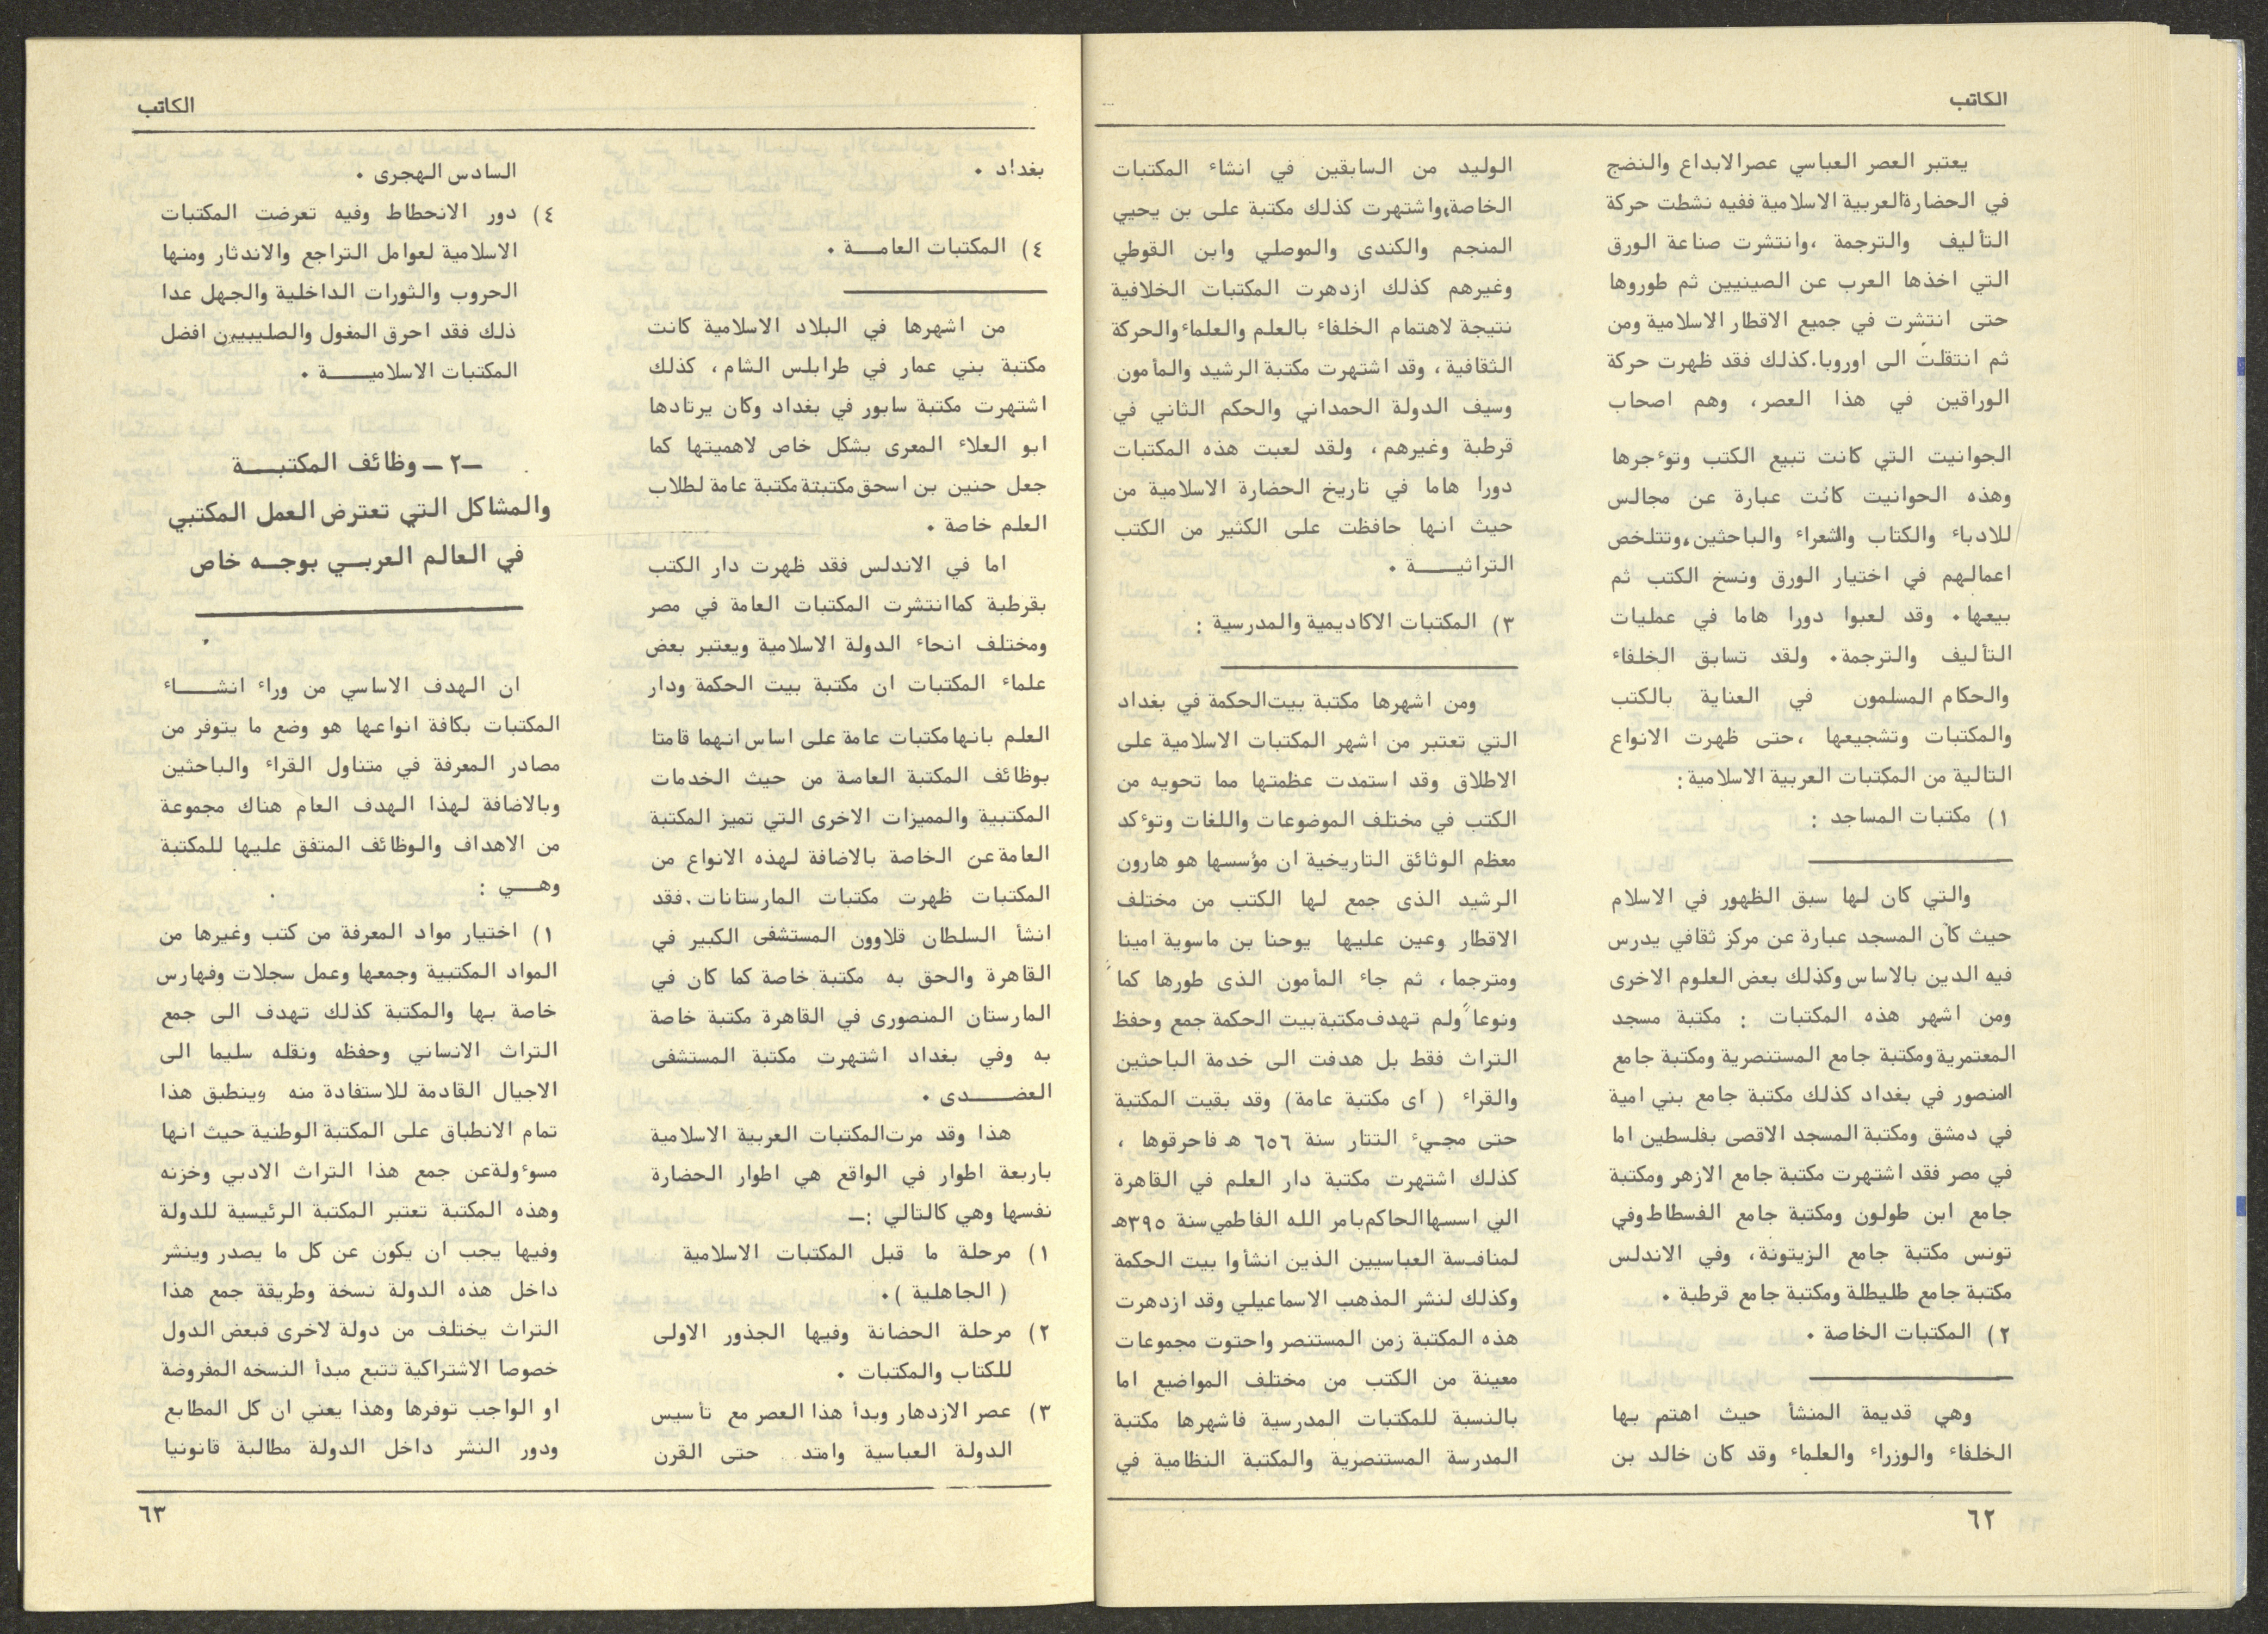 الكاتب
يعتبر العصر العباسي عصرالابداع والنضج
في الحضارةالعربية الاسلامية ففيه نشطت حركة
التأليف والترجمة ،وانتشرت صناعة الورق
التي اخذها العرب عن الصينيين ثم طوروها
حتى انتشرت في جميع الاقطار الاسلامية ومن
ثم انتقلت الى اوروبا.كذلك فقد ظهرت حركة
الوراقين في هذا العصر، وهم اصحاب
الحوانيت التي كانت تبيع الكتب وتوءجرها
وهذه الحوانيت كانت عبارة عن مجالس
للادباء والكتاب والشعراء والباحثين،وتتلخص
اعمالهم في اختيار الورق ونسخ الكتب ثم
بيعها. وقد لعبوا دورا هاما في عمليات
التأليف والترجمة. ولقد تسابق الخلفاء
والحكام المسلمون في العناية بالكتب
والمكتبات وتشجيعها ،حتى ظهرت الانواع
التالية من المكتبات العربية الاسلامية :
١) مكتبات المساجد :
والتي كان لها سبق الظهور في الاسلام
حيث كان المسجد عبارة عن مركز ثقافي يدرس
فيه الدين بالاساس وكذلك بعض العلوم الاخرى
ومن اشهر هذه المكتبات : مكتبة مسجد
المعتمرية ومكتبة جامع المستنصرية ومكتبة جامع
المنصور في بغداد كذلك مكتبة جامع بني امية
في دمشق ومكتبة المسجد الاقصى بفلسطين اما
في مصر فقد اشتهرت مكتبة جامع الازهر ومكتبة
جامع ابن طولون ومكتبة جامع الفسطاط وفي
تونس مكتبة جامع الزيتونة، وفي الاندلس
مكتبة جامع طليطلة ومكتبة جامع قرطبة .
٢) المكتبات الخاصة .
وهي قديمة المنشأ حيث اهتم بها
الخلفاء والوزراء والعلماء وقد كان خالد بن
الوليد من السابقين في انشاء المكتبات
الخاصة،واشتهرت كذلك مكتبة على بن يحيي
المنجم والكندى والموصلي وابن القوطي
وغيرهم كذلك ازدهرت المكتبات الخلافية
نتيجة لاهتمام الخلفاء بالعلم والعلماء والحركة
الثقافية ، وقد اشتهرت مكتبة الرشيد والمأمون
وسيف الدولة الحمداني والحكم الثاني في
قرطبة وغيرهم، ولقد لعبت هذه المكتبات
دورا هاما في تاريخ الحضارة الاسلامية من
حيث انها حافظت على الكثير من الكتب
التراثيـــة .
٣) المكتبات الاكاديمية والمدرسية :
ومن اشهرها مكتبة بيت الحكمة في بغداد
التي تعتبر من اشهر المكتبات الاسلامية على
الاطلاق وقد استمدت عظمتها مما تحويه من
الكتب في مختلف الموضوعات واللغات وتوءكد
معظم الوثائق التاريخية ان مؤسسها هو هارون
الرشيد الذى جمع لها الكتب من مختلف
الاقطار وعين عليها يوحنا بن ماسوية امينا
ومترجما، ثم جاء المأمون الذى طورها كماً
ونوعاً ولم تهدف مكتبة بيت الحكمة جمع وحفظ
التراث فقط بل هدفت الى خدمة الباحثين
والقراء ( اى مكتبة عامة) وقد بقيت المكتبة
حتى مجيء التتار سنة ٦٥٦ هـ فاحرقوها ،
كذلك اشتهرت مكتبة دار العلم في القاهرة
التي اسسها الحاكم بامر الله الفاطمي سنة ٣٩٥هـ
لمنافسة العباسيين الذين انشأوا بيت الحكمة
وكذلك لنشر المذهب الاسماعيلي وقد ازدهرت
هذه المكتبة زمن المستنصر واحتوت مجموعات
معينة من الكتب من مختلف المواضيع اما
بالنسبة للمكتبات المدرسية فاشهرها مكتبة
المدرسة المستنصرية والمكتبة النظامية في
٦٢
الكاتب
بغداد .
٤) المكتبات العامـــة .
من اشهرها في البلاد الاسلامية كانت
مكتبة بني عمار في طرابلس الشام، كذلك
اشتهرت مكتبة سابور في بغداد وكان يرتادها
ابو العلاء المعرى بشكل خاص لاهميتها كما
جعل حنين بن اسحق مكتبتة مكتبة عامة لطلاب
العلم خاصة .
اما في الاندلس فقد ظهرت دار الكتب
بقرطبة كماانتشرت المكتبات العامة في مصر
ومختلف انحاء الدولة الاسلامية ويعتبر بعض
علماء المكتبات ان مكتبة بيت الحكمة ودار
العلم بانها مكتبات عامة على اساس انهما قامتا
بوظائف المكتبة العامة من حيث الخدمات
المكتبية والمميزات الاخرى التي تميز المكتبة
العامة عن الخاصة بالاضافة لهذه الانواع من
المكتبات ظهرت مكتبات المارستانات .فقد
انشأ السلطان قلاوون المستشفى الكبير في
القاهرة والحق به مكتبة خاصة كما كان في
المارستان المنصورى في القاهرة مكتبة خاصة
به وفي بغداد اشتهرت مكتبة المستشفى
العضـــدى .
هذا وقد مرت المكتبات العربية الاسلامية
باربعة اطوار في الواقع هي اطوار الحضارة
نفسها وهي كالتالي :ــ
١) مرحلة ما قبل المكتبات الاسلامية
( الجاهلية ).
٢) مرحلة الحضانة وفيها الجذور الاولى
للكتاب والمكتبات .
٣) عصر الازدهار وبدأ هذا العصر مع تأسيس
الدولة العباسية وامتد حتى القرن
السادس الهجرى .
٤) دور الانحطاط وفيه تعرضت المكتبات
الاسلامية لعوامل التراجع والاندثار ومنها
الحروب والثورات الداخلية والجهل عدا
ذلك فقد احرق المغول والصليبيين افضل
المكتبات الاسلاميـــة .
ــ٢ــ وظائف المكتبـــة
والمشاكل التي تعترض العمل المكتبي
في العالم العربــي بوجــه خاص
ان الهدف الاساسي من وراء انشـــاء
المكتبات بكافة انواعها هو وضع ما يتوفر من
مصادر المعرفة في متناول القراء والباحثين
وبالاضافة لهذا الهدف العام هناك مجموعة
من الاهداف والوظائف المتفق عليها للمكتبة
وهـــي :
١) اختيار مواد المعرفة من كتب وغيرها من
المواد المكتبية وجمعها وعمل سجلات وفهارس
خاصة بها والمكتبة كذلك تهدف الى جمع
التراث الانساني وحفظه ونقله سليما الى
الاجيال القادمة للاستفادة منه وينطبق هذا
تمام الانطباق على المكتبة الوطنية حيث انها
مسوءولةعن جمع هذا التراث الادبي وخزنه
وهذه المكتبة تعتبر المكتبة الرئيسية للدولة
وفيها يجب ان يكون عن كل ما يصدر وينشر
داخل هذه الدولة نسخة وطريقة جمع هذا
التراث يختلف من دولة لاخرى فبعض الدول
خصوصا الاشتراكية تتبع مبدأ النسخه المفروضة
او الواجب توفرها وهذا يعني ان كل المطابع
ودور النشر داخل الدولة مطالبة قانونيا
٦٣